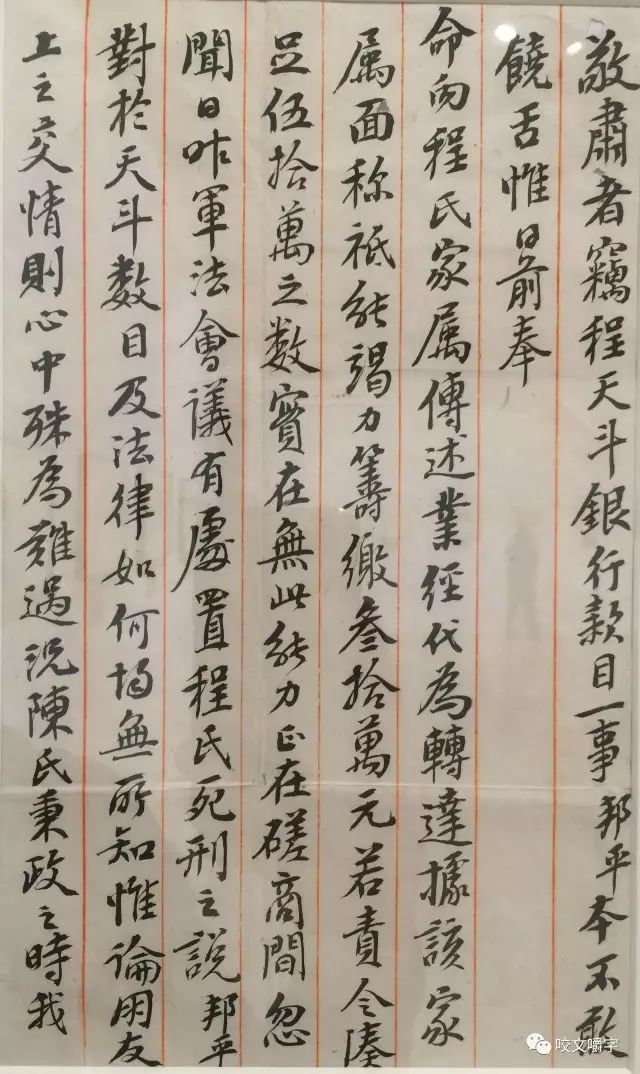 敬肅者竊程天斗銀行款目一事邦平本不敢
饒舌惟日前奉
命向程氏家属傳述業經代為轉達據該家
属面称祗能竭力籌繳叁拾萬元若責令湊
足伍拾萬之数實在無此能力正在磋商間忽
聞日昨軍法會議有處置程氏死刑之說邦平
對於天斗数目及法律如何均無所知惟論朋友
上之交情則心中殊為難過況陳氏秉政之時我
咬文嚼字